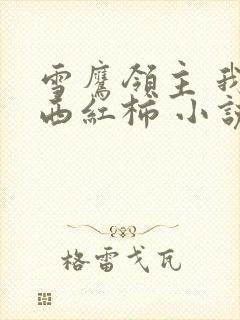 雪鷹領主 我
西紅柿 小說
格雷戈瓦